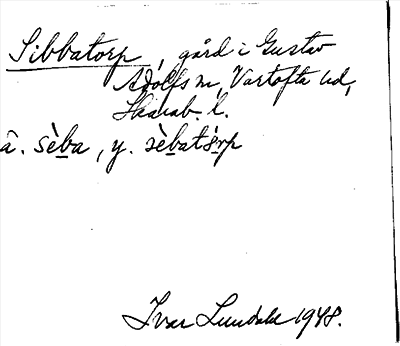 Sibbatorp, gård i Gustav
Adolfs sn, Vartofta hd,
Skarab. l.
â. sèba, y. sèbatårp
Ivar Lundahl 1948.